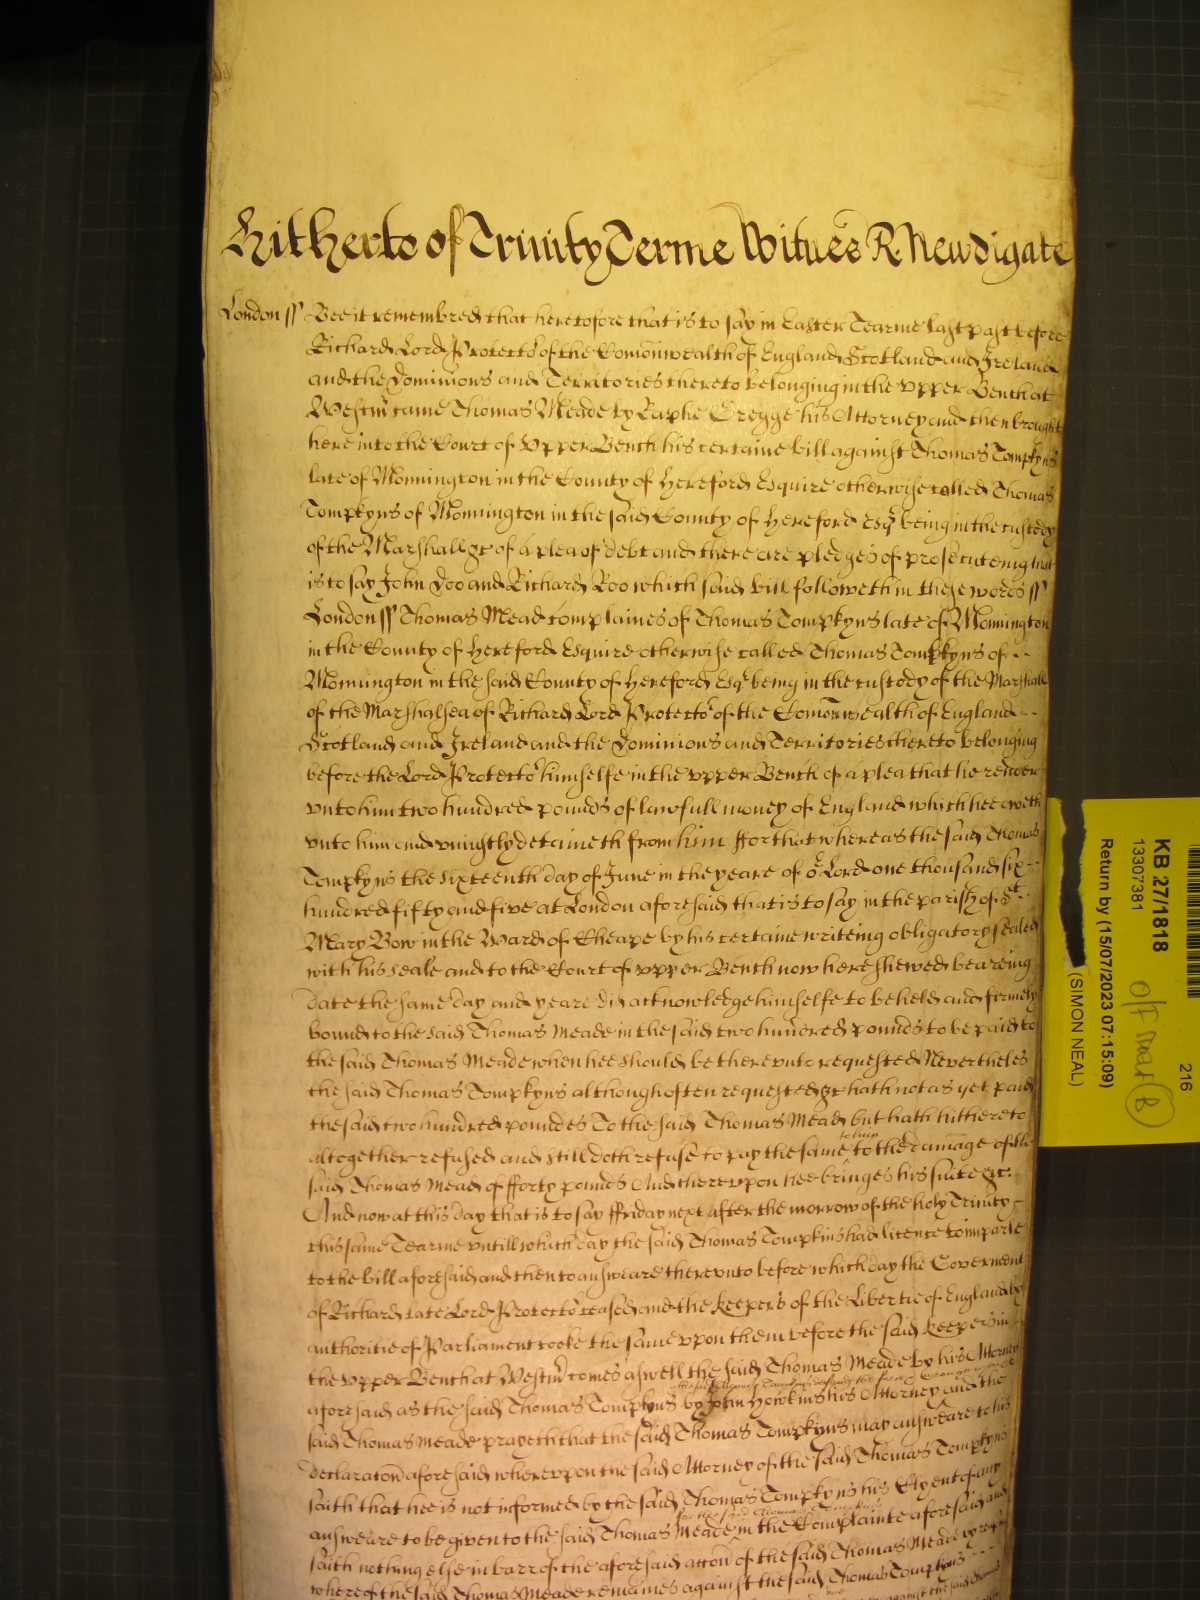 Hitherto of Trinity Terme Witnes R. Newdigate
London ss Bee it remembred that heretofore that is to say in Easter Tearme last past before
Richard Lord Protector of the Comonwealth of England Scotland and Ireland
and the Dominions and Territories thereto belonging in the upper Bench at
Westmr came Thomas Meade by Raphe Gregge his Attorney and then brought
here into the Court of Upper Bench his certaine bill against Thomas Tompkyns
late of Monnington in the County of Hereford Esquire otherwise called Thomas
Tompkyns of Monnington in the said County of Hereford Esqr being in the custody
of the Marshall &c of a plea of debt and there are pledges of prosecuteing that
is to say John Doo and Richard Roo which said bill followeth in these words ss
London ss Thomas Mead complaines of Thomas Tompkyns late of Monnington
in the County of Hereford Esquire otherwise called Thomas Tompkyns of
Monnington in the said County of Hereford Esqr being in the custody of the Marshall
of the Marshalsea of Richard Lord Protector of the Comonwealth of England
Scotland and Ireland and the Dominions and Territories thereto belonging
before the Lord Protector himselfe in the upper Bench of a plea that he render
unto him two hundred pounds of lawfull money of England which hee oweth
unto him and uniustly detaineth from him ffor that whereas the said Thomas
Tompkyns the sixteenth day of June in the yeare of or Lord one thousand six
hundred fifty and five at London aforesaid that is to say in the parish of St
Mary Bow in the Ward of Cheape by his certaine writeing obligatory sealed
with his seale and to the Court of upper Bench now here shewed beareing
date the same day and yeare did acknowledge himselfe to be held and firmely
bound to the said Thomas Meade in the said two hundred pounds to be paid to
the said Thomas Meade when hee should be thereunto requested Nevertheles
the said Thomas Tompkyns although often requested &c hath not as yet paid
the said two hundred poundes To the said Thomas Mead but hath hitthereto
to him
altogether refused and still doth refuse to pay the same to the damage of the
said Thomas Mead of fforty pounds And thereupon hee bringes his suite &c.
And now at this day that is to say ffriday next after the morrow of the holy Trinity
this same Tearme untill which day the said Thomas Tompkins had licence to imparle
to the bill aforesaid and then to answeare thereunto before which day the Goverment
of Richard late Lord Protector ceased and the keepers of the Libertie of England by
authoritie of Parliament tooke the same upon them before the said keepers in
the upper Bench at Westmr comes aswell the said Thomas Meade by his Attorney
aforesaid as the said Thomas Tompkyns by John Howkins his Attorney and the
said Thomas Meade prayeth that the said Thomas Tompkyns may answeare to his
declaraton aforesaid whereupon the said Attorney of the said Thomas Tompkyns
saith that hee is not informed by the said Thomas Tompkyns his Clyent of any
for the said Thomas Tompkins
answeare to be given to the said Thomas Meade in the Complainte aforesaid and
saith nothing else in barr of the aforesaid accon of the said Thomas Meade by reason
whereof the said Thomas Meade remaines against the said Thomas Tompkyns
216
KB 27/1818
13307381
Return by (15/07/2023 07:15:09)
(SIMON NEAL)